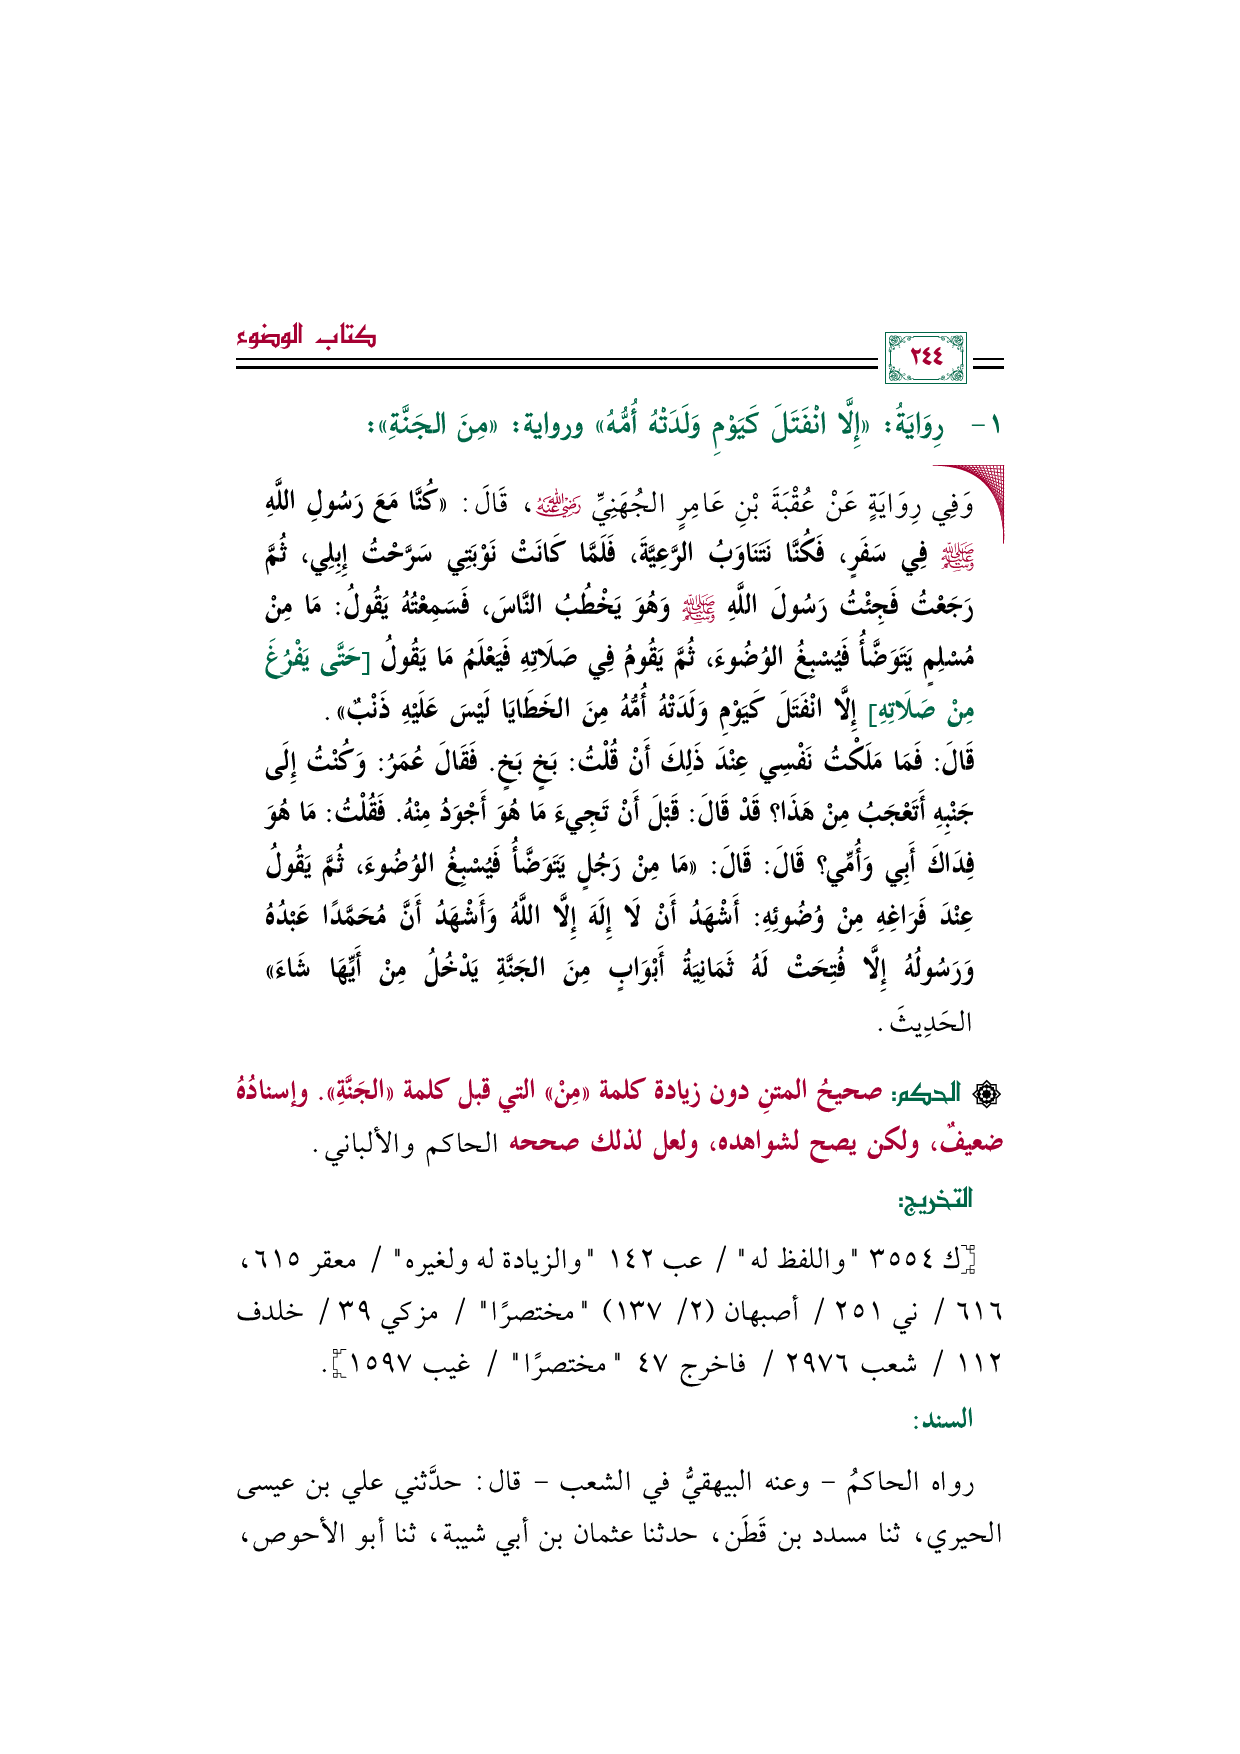 كتاب الوضوء
٢٤٤
١- رِوَايَةُ: «إِلَّا انْفَتَلَ كَيَوْمِ وَلَدَتْهُ أُمُّهُ» ورواية: «مِنَ الجَنَّةِ»:
وَفِي رِوَايَةٍ عَنْ عُقْبَةَ بْنِ عَامِرٍ الجُهَنِيِّ رضي الله عنه، قَالَ: «كُنَّا مَعَ رَسُولِ اللَّهِ
ﷺ فِي سَفَرٍ، فَكُنَّا نَتَنَاوَبُ الرَّعِيَّةَ، فَلَمَّا كَانَتْ نَوْبَتِي سَرَّحْتُ إِبِلِي، ثُمَّ
رَجَعْتُ فَجِئْتُ رَسُولَ اللَّهِ ﷺ وَهُوَ يَخْطُبُ النَّاسَ، فَسَمِعْتُهُ يَقُولُ: مَا مِنْ
مُسْلِمٍ يَتَوَضَّأُ فَيُسْبِغُ الوُضُوءَ، ثُمَّ يَقُومُ فِي صَلَاتِهِ فَيَعْلَمُ مَا يَقُولُ [حَتَّى يَفْرُغَ
مِنْ صَلَاتِهِ] إِلَّا انْفَتَلَ كَيَوْمِ وَلَدَتْهُ أُمُّهُ مِنَ الخَطَايَا لَيْسَ عَلَيْهِ ذَنْبٌ».
قَالَ: فَمَا مَلَكْتُ نَفْسِي عِنْدَ ذَلِكَ أَنْ قُلْتُ: بَخٍ بَخٍ. فَقَالَ عُمَرُ: وَكُنْتُ إِلَى
جَنْبِهِ أَتَعْجَبُ مِنْ هَذَا؟ قَدْ قَالَ: قَبْلَ أَنْ تَجِيءَ مَا هُوَ أَجْوَدُ مِنْهُ. فَقُلْتُ: مَا هُوَ
فِدَاكَ أَبِي وَأُمِّي؟ قَالَ: قَالَ: «مَا مِنْ رَجُلٍ يَتَوَضَّأُ فَيُسْبِغُ الوُضُوءَ، ثُمَّ يَقُولُ
عِنْدَ فَرَاغِهِ مِنْ وُضُوئِهِ: أَشْهَدُ أَنْ لَا إِلَهَ إِلَّا اللَّهُ وَأَشْهَدُ أَنَّ مُحَمَّدًا عَبْدُهُ
وَرَسُولُهُ إِلَّا فُتِحَتْ لَهُ ثَمَانِيَةُ أَبْوَابٍ مِنَ الجَنَّةِ يَدْخُلُ مِنْ أَيِّهَا شَاءَ»
الحَدِيثَ.
الحكم: صحيحُ المتنِ دون زيادة كلمة «مِنْ» التي قبل كلمة «الجَنَّةِ». وإسنادُهُ
ضعيفٌ، ولكن يصح لشواهده، ولعل لذلك صححه الحاكم والألباني.
التخريج:
[ك ٣٥٥٤ "واللفظ له" / عب ١٤٢ "والزيادة له ولغيره" / معقر ٦١٥،
٦١٦ / ني ٢٥١ / أصبهان (٢/ ١٣٧) "مختصرًا" / مزكي ٣٩ / خلدف
١١٢ / شعب ٢٩٧٦ / فاخرج ٤٧ "مختصرًا" / غيب ١٥٩٧].
السند:
رواه الحاكمُ - وعنه البيهقيُّ في الشعب - قال: حدَّثني علي بن عيسى
الحيري، ثنا مسدد بن قَطَن، حدثنا عثمان بن أبي شيبة، ثنا أبو الأحوص،